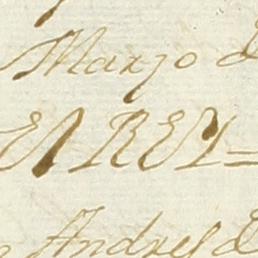 Marzo d
El REY
Andres d